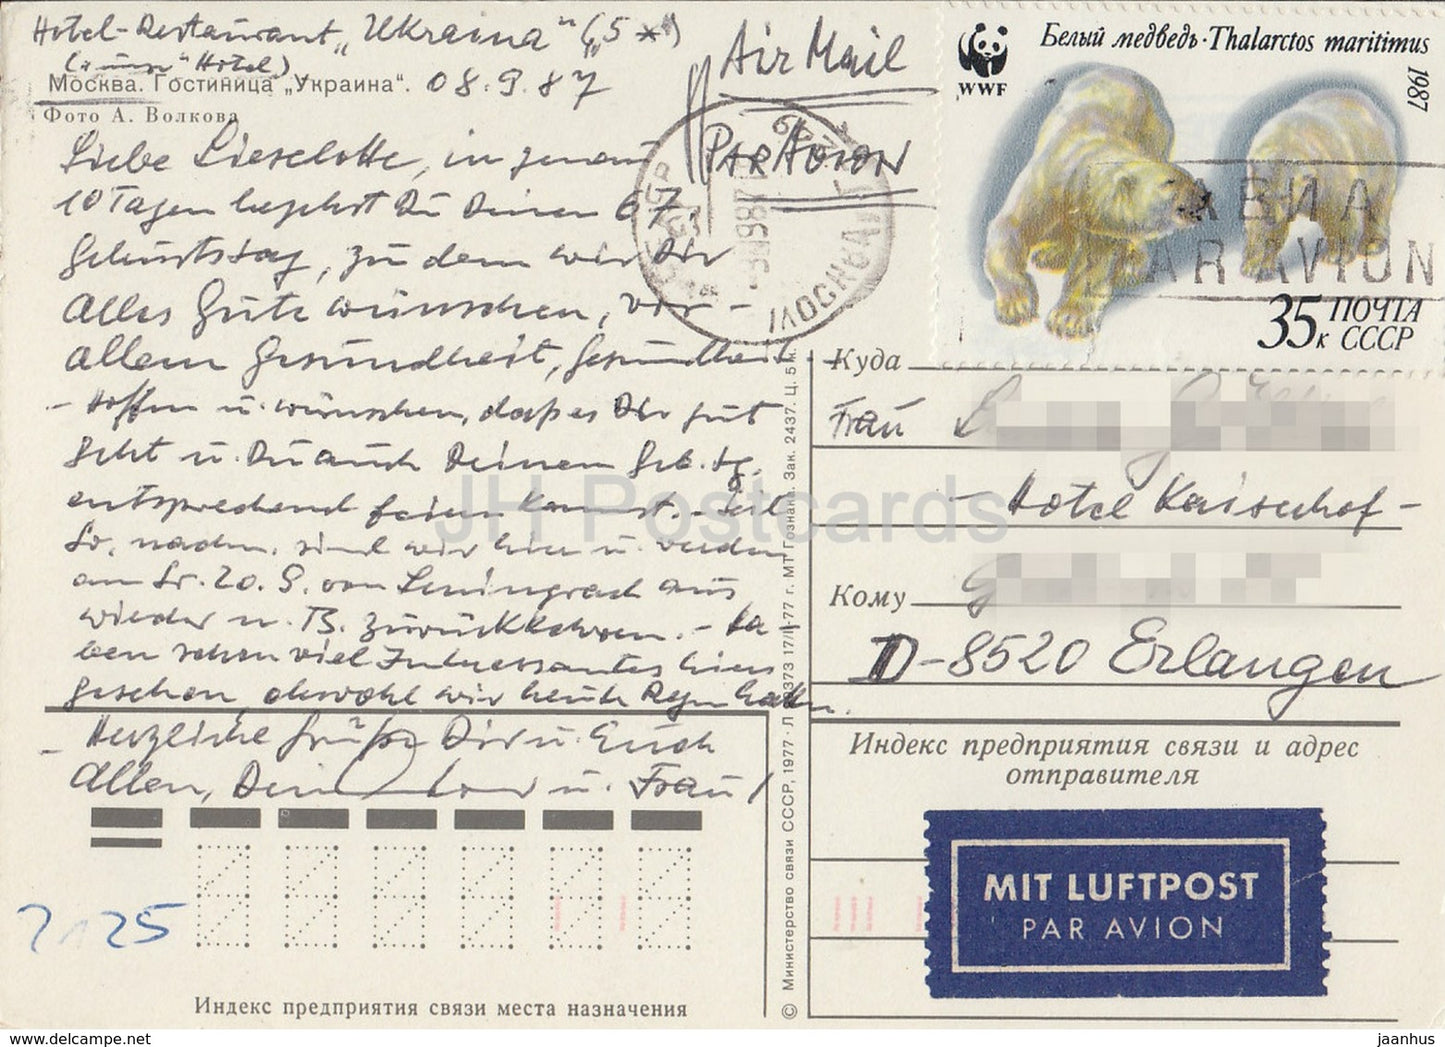 Hotel-Restaurant „Ukraina“ („5 *“)
(= unser Hotel)
Москва. Гостиница „Украина“. 08.9.87
Фото А. Волкова
Air Mail
PAR AVION
Liebe Lieselotte, in genau
10 Tagen begehst Du Deinen 67.
Geburtstag, zu dem wir Dir
alles Gute wünschen, vor-
allem Gesundheit, Gesundheit
- Hoffen u. wünschen, daß es Dir gut
geht u. Du auch Deinen Geb.tg.
entsprechend feiern kannst. - Seit
So. nachm. sind wir hier u. werden
am So. 20.9. von Leningrad aus
wieder n. B. zurückkehren. - Ha-
ben schon viel Interessantes hier
gesehen obwohl wir heute Regen hatten.
- Herzliche Grüße Dir u. Euch
allen, Dein u. Frau
2125
Индекс предприятия связи места назначения
© Министерство связи СССР, 1977 · 17/II-77 г. МТ Гознака. Зак. 2437. Ц. 5 к.
WWF
Белый медведь · Thalarctos maritimus
1987
АВИА
PAR AVION
35к ПОЧТА
СССР
Куда
Frau
- Hotel Kaiserhof -
Кому
D-8520 Erlangen
Индекс предприятия связи и адрес
отправителя
MIT LUFTPOST
PAR AVION
JH Postcards
https://www.jhpostcards.com
jaanhus